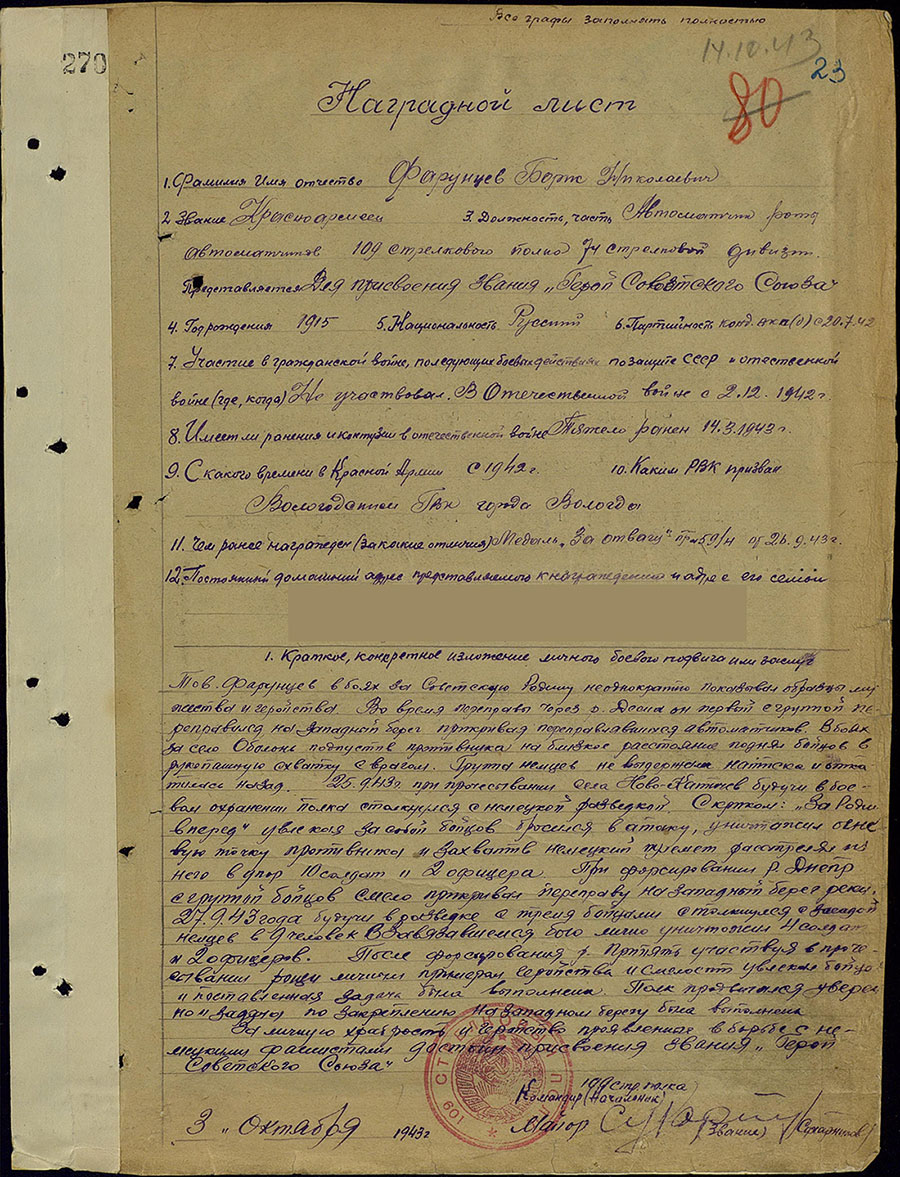 Все графы заполнять полностью
14.10.43
270
23
80
Наградной лист
1. Фамилия Имя отчество Фарунцев Борис Николаевич
2 Звание Красноармеец 3. Должность, часть Автоматчик роты
автоматчиков 109 стрелкового полка 74 стрелковой дивизии.
Представляется Для присвоения звания „Герой Советского Союза"
4. Год рождения 1915 5. Национальность Русский 6. Партийность канд. вкп(б) с 20.7.42
7. Участие в гражданской войне, последующих боевых действиях по защите СССР и отечественной
войне (где, когда) Не участвовал. В Отечественной войне с 2.12.1942г.
8. Имеет ли ранения и контузии в отечественной войне Тяжело ранен 14.3.1943г.
9. С какого времени в Красной Армии с 1942г. 10. Каким РВК призван
Вологодским ГВК города Вологды
11. Чем ранее награжден (за какие отличия) Медаль „За отвагу" пр-м 59/н от 26.9.43г.
12. Постоянный домашний адрес представляемого к награждению и адрес его семьи
1. Краткое, конкретное изложение личного боевого подвига или заслуг
Тов. Фарунцев в боях за Советскую Родину неоднократно показывал образцы му-
жества и геройства. Во время переправы через р. Десна он первой с группой пе-
реправился на западный берег прикрывая переправлявшихся автоматчиков. В боях
за село Оболонь подпустив противника на близкое расстояние поднял бойцов в
рукопашную схватку с врагом. Группа немцев не выдержала натиска и отка-
тилась назад. 25.9.43г. при прочесывании села Ново-Житнев будучи в бое-
вом охранении полка столкнулся с немецкой разведкой. С криком: „За Роди
вперед" увлекая за собой бойцов бросился в атаку, уничтожил огне
вую точку противника и захватив немецкий пулемет расстрелял из
него в упор 10 солдат и 2 офицера. При форсировании р. Днепр
с группой бойцов смело прикрывал переправу на западный берег реки.
27.9.43 года будучи в разведке с тремя бойцами столкнулся с засадой
немцев в 9 человек В завязавшемся бою лично уничтожил 4 солдат
и 2 офицеров. После форсирования р. Припять участвуя в проче-
сывании рощи личным примером геройства и смелости увлекал бойцов
и поставленная задача была выполнена. Полк продвигался уверен
но и задача по закреплению на западном берегу была выполнена
За личную храбрость и геройство проявленные в борьбе с не-
мецкими фашистами достоин присвоения звания „Герой
Советского Союза"
109 стр. полка
Командир (Начальник)
3 „ Октября 1943г Майор
(Звание)